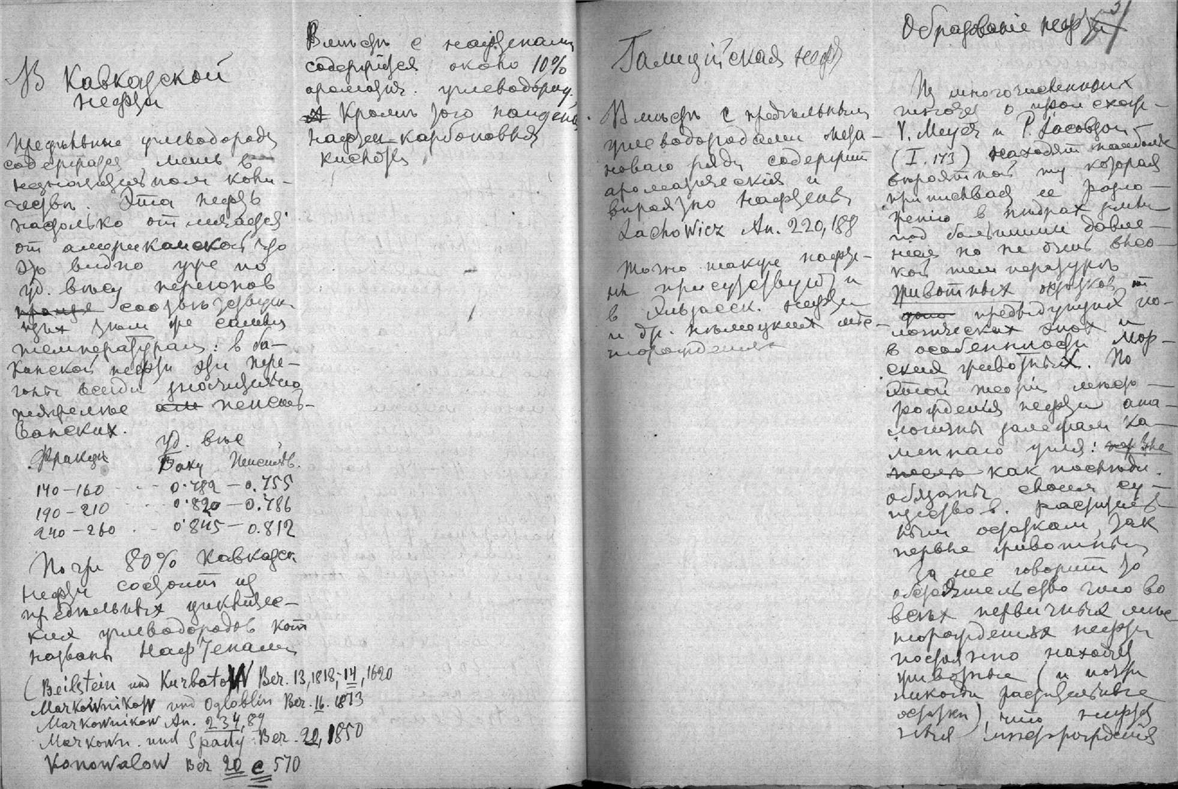 В Кавказской
нефти
Предельные углеводороды
содержатся лишь в
незначительном коли-
честве. Эта нефть
настолько отличается
от американской что
это видно уже по
уд. весу перегонов
соответствую-
щих тем же самым
температурам: в ба-
канской нефти эти пере-
гоны всегда значительно
тяжелее пенсиль-
ванских.
уд. вес
Фракции Баку Пенсильв.
140-160 0.782 - 0.755
190-210 0.820 - 0.786
240-260 0.845 - 0.812
Почти 80% Кавказск
нефти состоит из
предельных циклическ-
ких углеводородов кот
названы Нафтенами
(Beilstein und Kurbatow Ber. 13, 1818, 14, 1620
Markownikow und Ogloblin Ber. 16. 1873
Markownikow An. 234, 89
Markown. und Spady Ber. 20, 1850
Konowalow Ber 20 c 570
Вместе с нафтенами
содержится около 10%
аромати. углеводород.
Кроме того найдены
нафтен-карбоновыя
кислоты
Галицийская нефть
Вместе с предельными
углеводородами мета-
новаго ряда содержит
ароматическия и
вероятно нафтены
Lachowicz An. 220, 188
Точно также нафте-
ны присутствуют и
в Эльзасск. нефти
и др. немецких мес-
торождениях
Образование нефти
Из многочисленных
теорий о происхожд-
V. Meyer и P. Jacobson
(I. 173) находят наиболее
вероятной ту которая
приписывает ее разло-
жению в недрах земли
под большим давле-
нием но не очень высо-
кой температуре
животных остатков от
предыдущих гео-
логических эпох и
в особенности мор-
ских животных. По
этой теории место-
рождения нефти ана-
логичны залежам ка-
меннаго угля:
как последн.
обязаны своим су-
ществов. раститель-
ным остаткам, так
первые животным
За нее говорит то
обстоятельство что во
всех первичных мес
торождениях нефти
постоянно находят
животные (и почти
никогда растительные
остатки), что нефтя
ныя месторождения